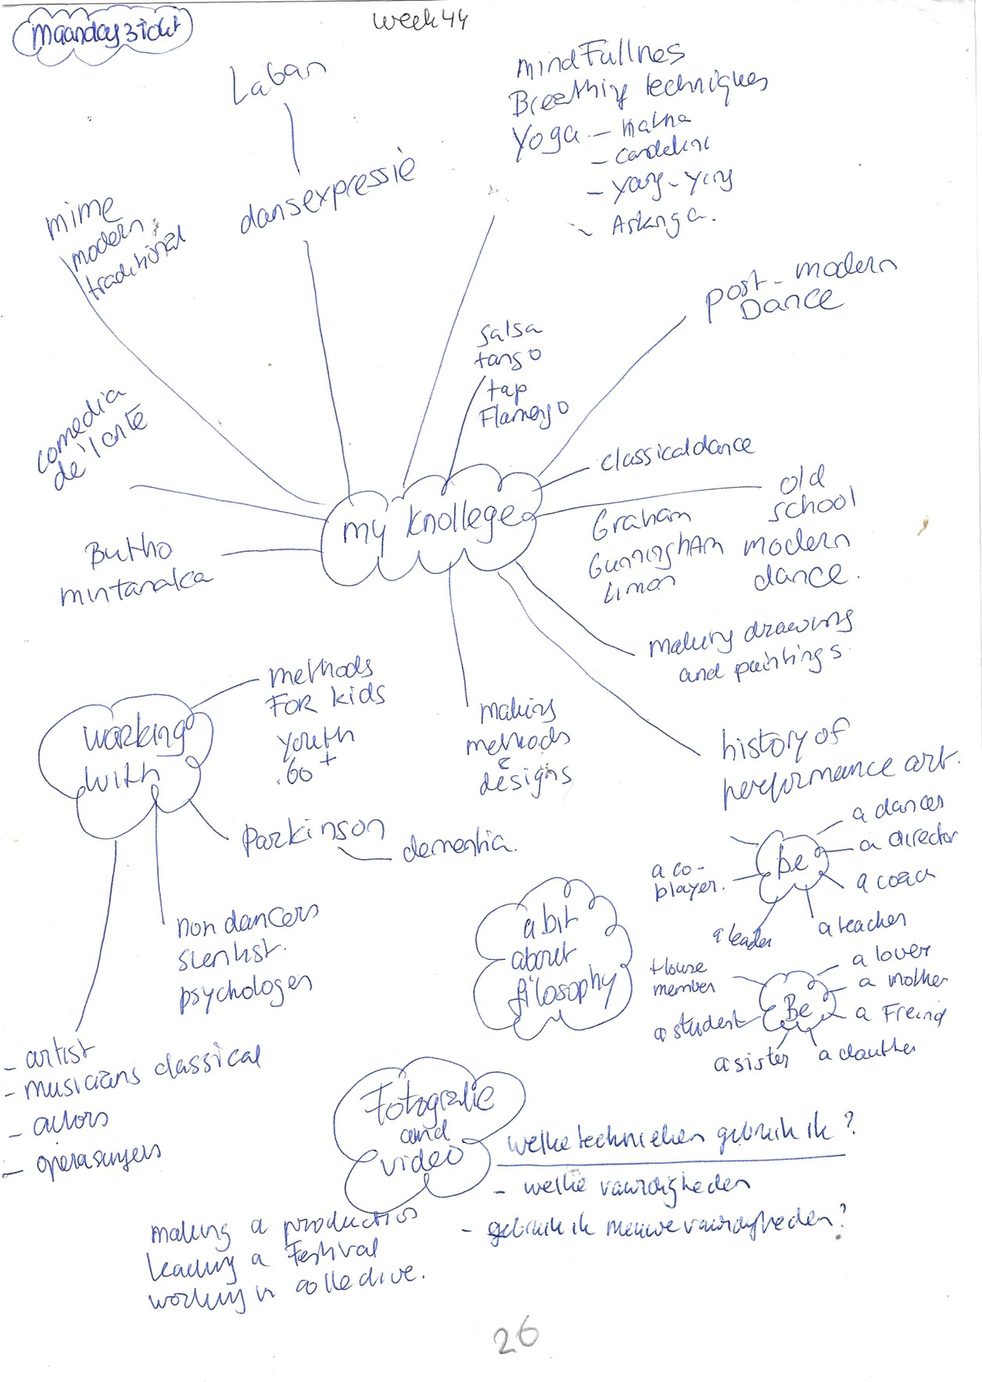 maanday 31 okt
week 44
Laban
dansexpressie
mindFullnes
Breething techniques
Yoga - Hatha
- yang-ying
mime
modern
traditional
post-modern
Dance
salsa
tango
tap
Flamengo
comedia
de'l arte
classicaldance
old
school
modern
dance.
Graham
Cunningham
Limon
my knollege
Butho
mintanaka
making drawing
and paintings.
methods
FOR kids
youth
60+
working
with
making
methods
&
designs
history of
performance art.
Parkinson
dementia.
Be
a dancer
a director
a coach
a teacher
a leader
a co-
player.
a bit
about
filosophy
non dancers
sientist.
psychologen
Be
a lover
a mother
a Freind
a dauther
a sister
a student
House
member
- artist
- musicians classical
- actors
- operasingers
Fotografie
and
video
welke technieken gebruik ik?
- welke vaardigheden
- gebruik ik nieuwe vaardigheden?
making a production
leading a Festival
working in collective.
26